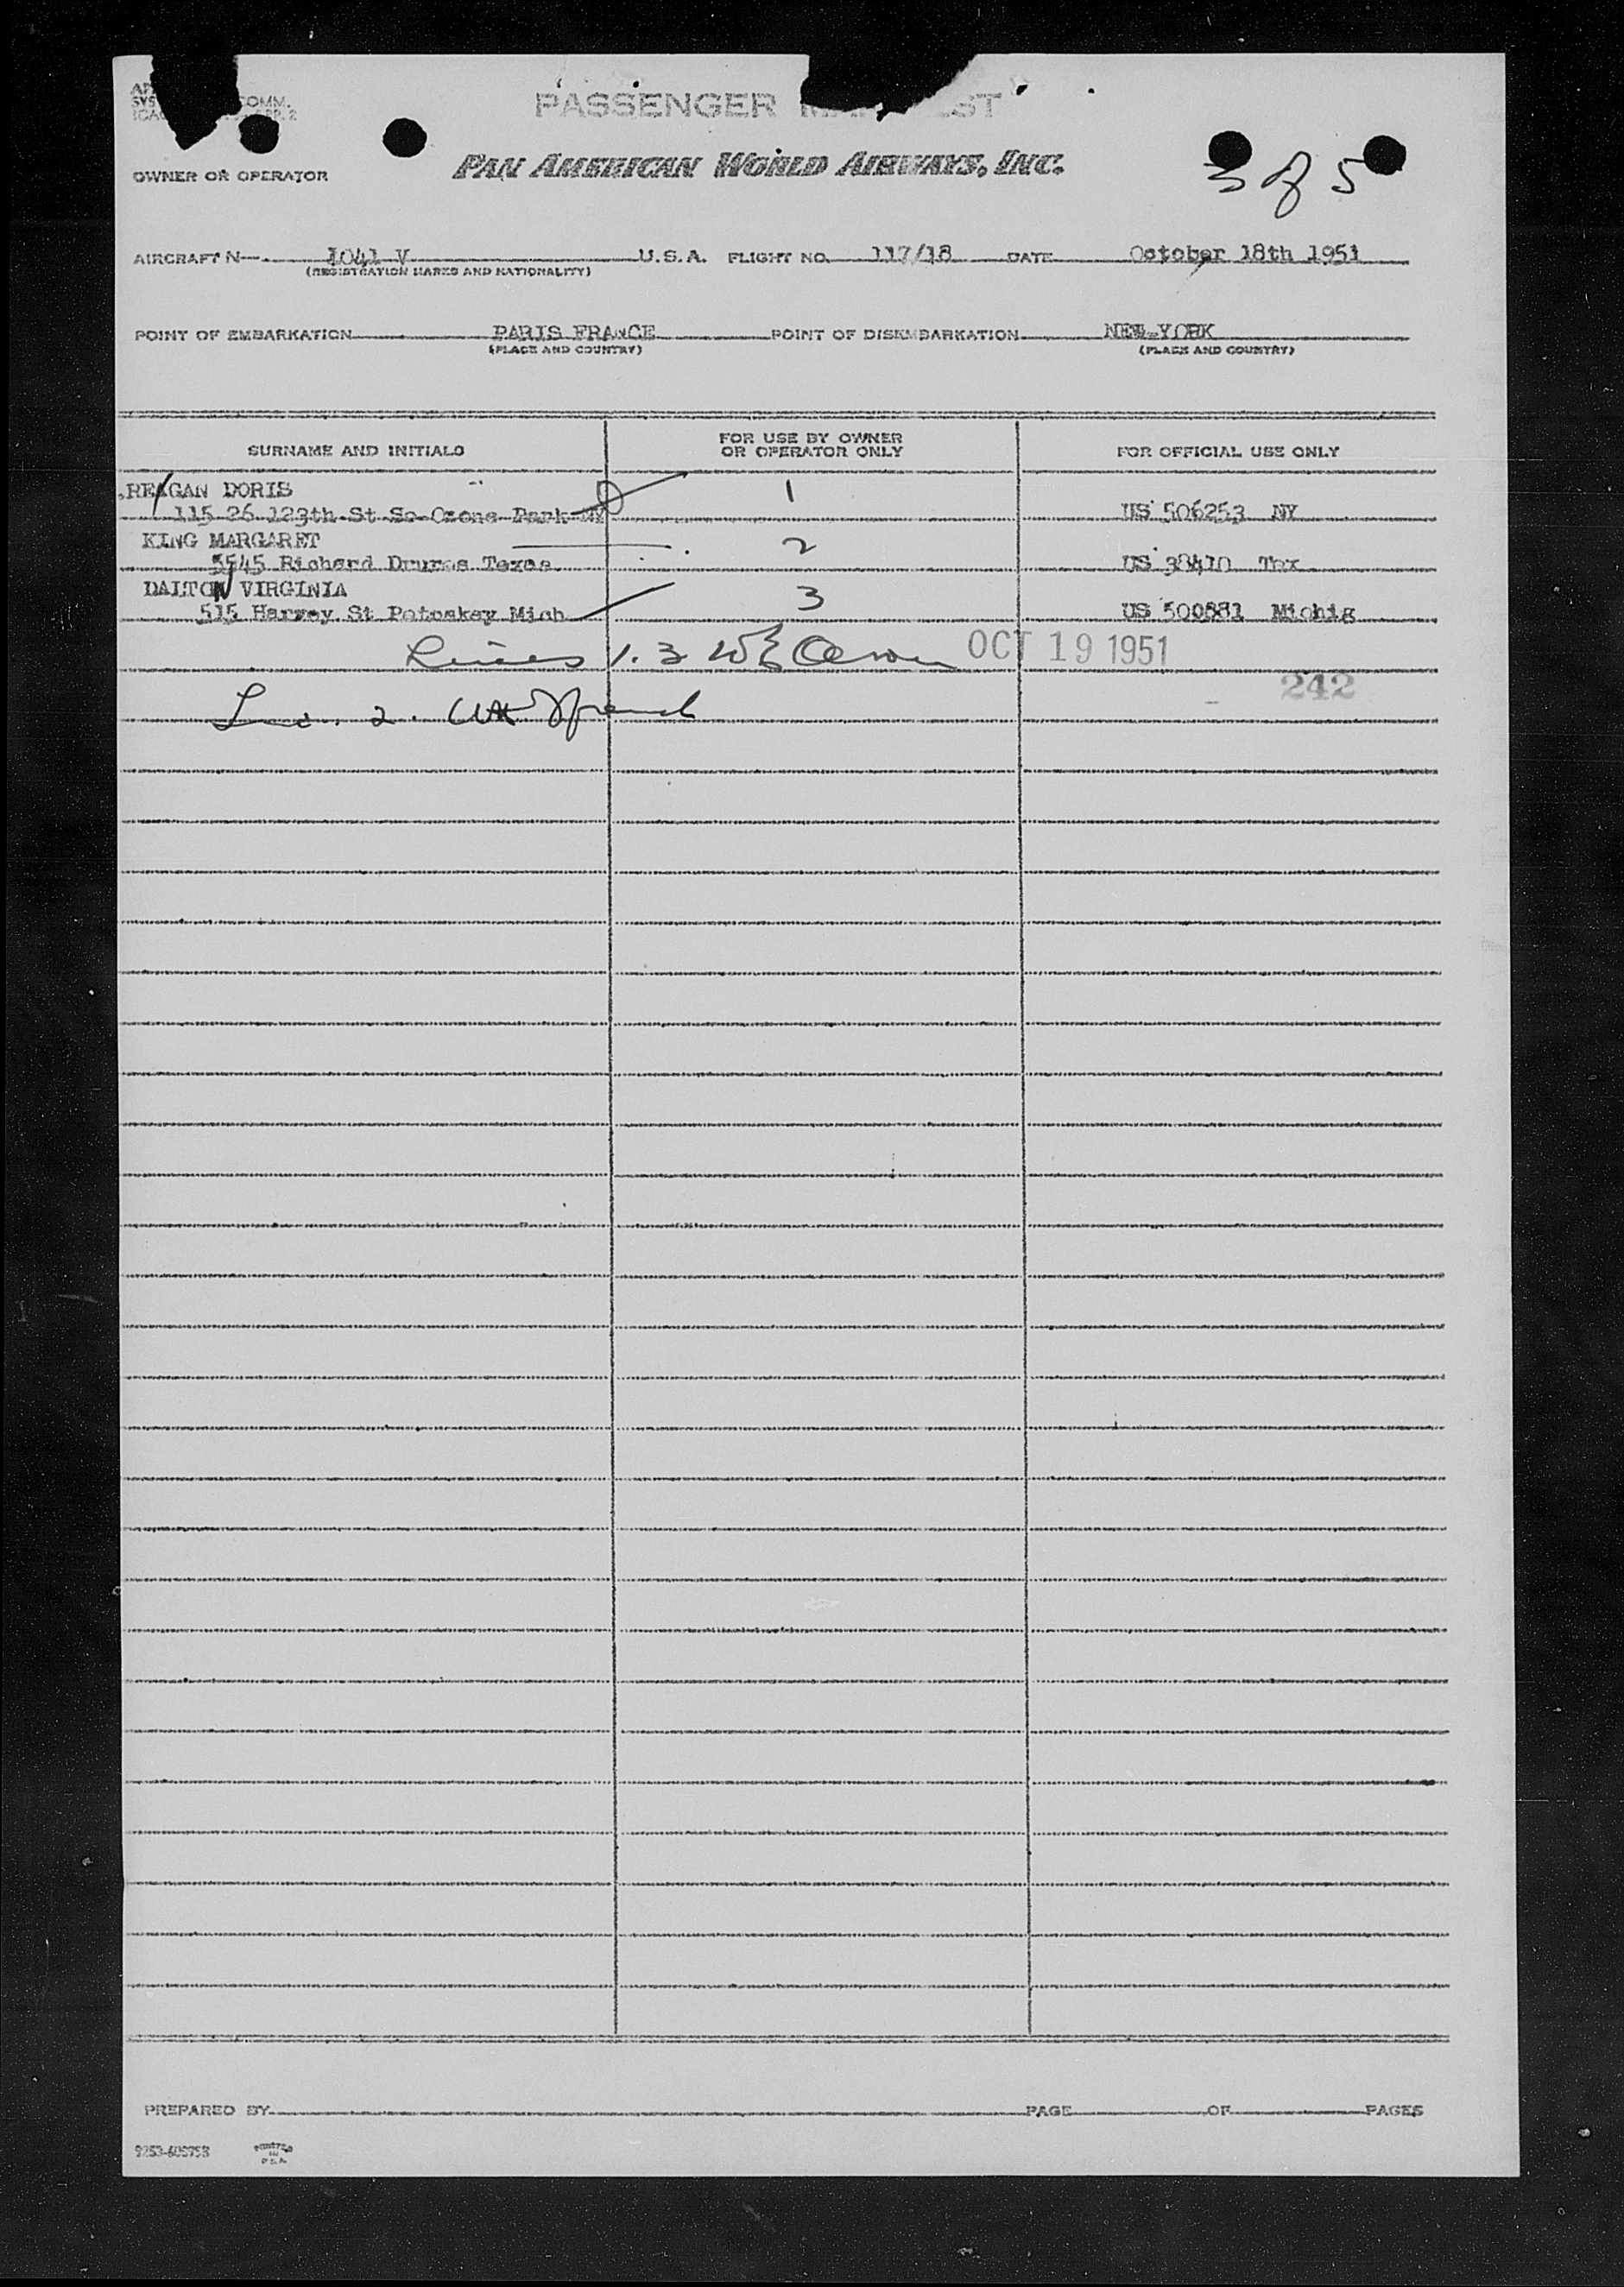 COMM.
PASSENGER
OWNER OR OPERATOR
PAN AMERICAN WORLD AIRWAYS, INC.
3 of 5
AIRCRAFT N- 1041 V U.S.A. FLIGHT NO. 117/18 DATE October 18th 1951
(REGISTRATION MARKS AND NATIONALITY)
POINT OF EMBARKATION PARIS FRANCE POINT OF DISEMBARKATION NEW YORK
(PLACE AND COUNTRY) (PLACE AND COUNTRY)
SURNAME AND INITIALS FOR USE BY OWNER OR OPERATOR ONLY FOR OFFICIAL USE ONLY
REAGAN DORIS 1
115 26 123th St So Ozone Park NY US 506253 NY
KING MARGARET 2
5545 Richard Texas US 38410 Tex
DALTON VIRGINIA 3
515 Harvey St Petoskey Mich US 500881 Michig
Lines 1. 3 OCT 19 1951
242
2.
PREPARED BY PAGE OF PAGES